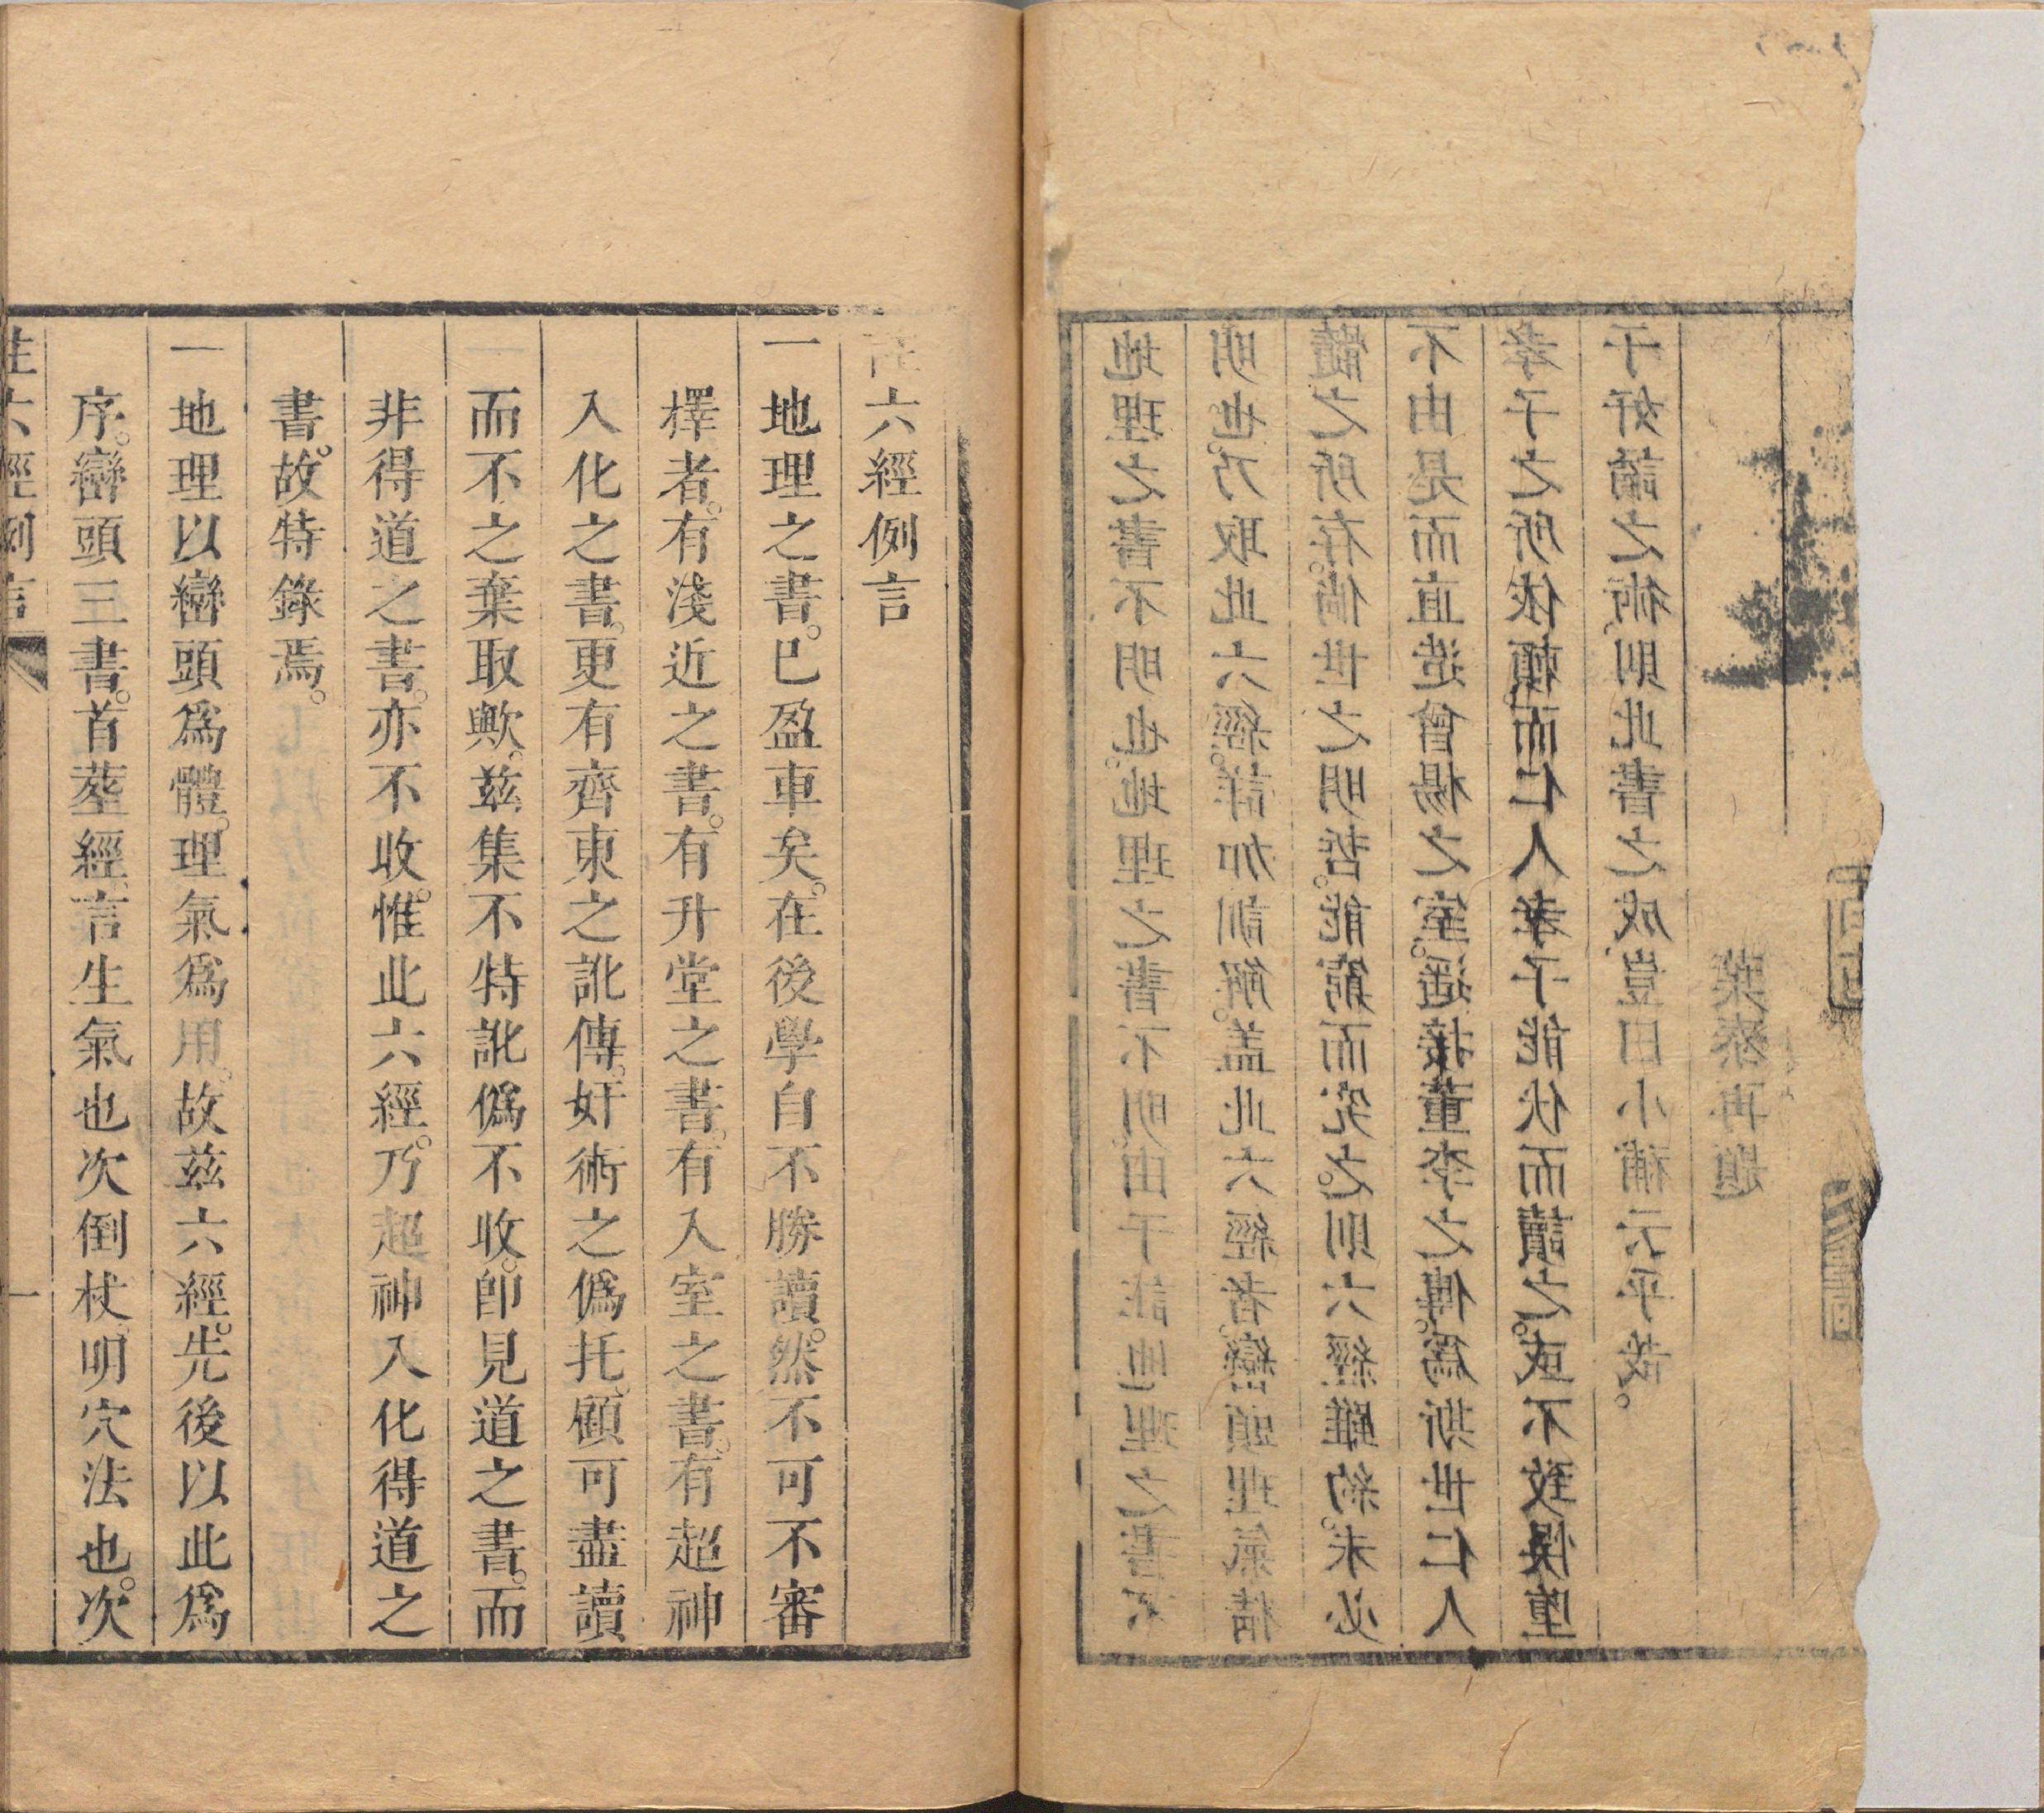 地理之書不明也。地理之書不明。由于註地理之書不
明也。乃取此六經。詳加訓解。盖此六經者。巒頭理氣精
髓之所存。倘世之明哲。能窮而究之。則六經雖約。未必
不由是而直造曾楊之室。遥接董李之傳。爲斯世仁人
孝子之所依頼。而仁人孝子能伏而讀之。或不致悞堕
于奸譎之術。則此書之成。豈曰小補云乎哉。
葉泰再題
六經例言
一地理之書。巳盈車矣。在後學自不勝讀。然不可不審
擇者。有淺近之書。有升堂之書。有入室之書。有超神
入化之書。更有齊東之訛傳。奸術之僞托。顧可盡讀
而不之棄取歟。兹集不特訛僞不收。卽見道之書。而
非得道之書。亦不收。惟此六經。乃超神入化得道之
書。故特錄焉。
一地理以巒頭爲體。理氣爲用。故兹六經。先後以此爲
序。巒頭三書。首葬經。言生氣也次倒杖。明穴法也。次
六經例言
一